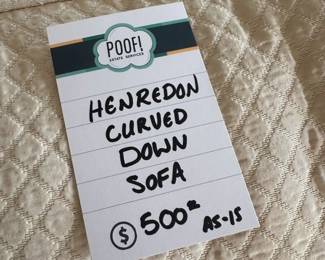 POOF!
ESTATE SERVICES
HENREDON
CURVED
DOWN
SOFA
$ 500 AS-IS